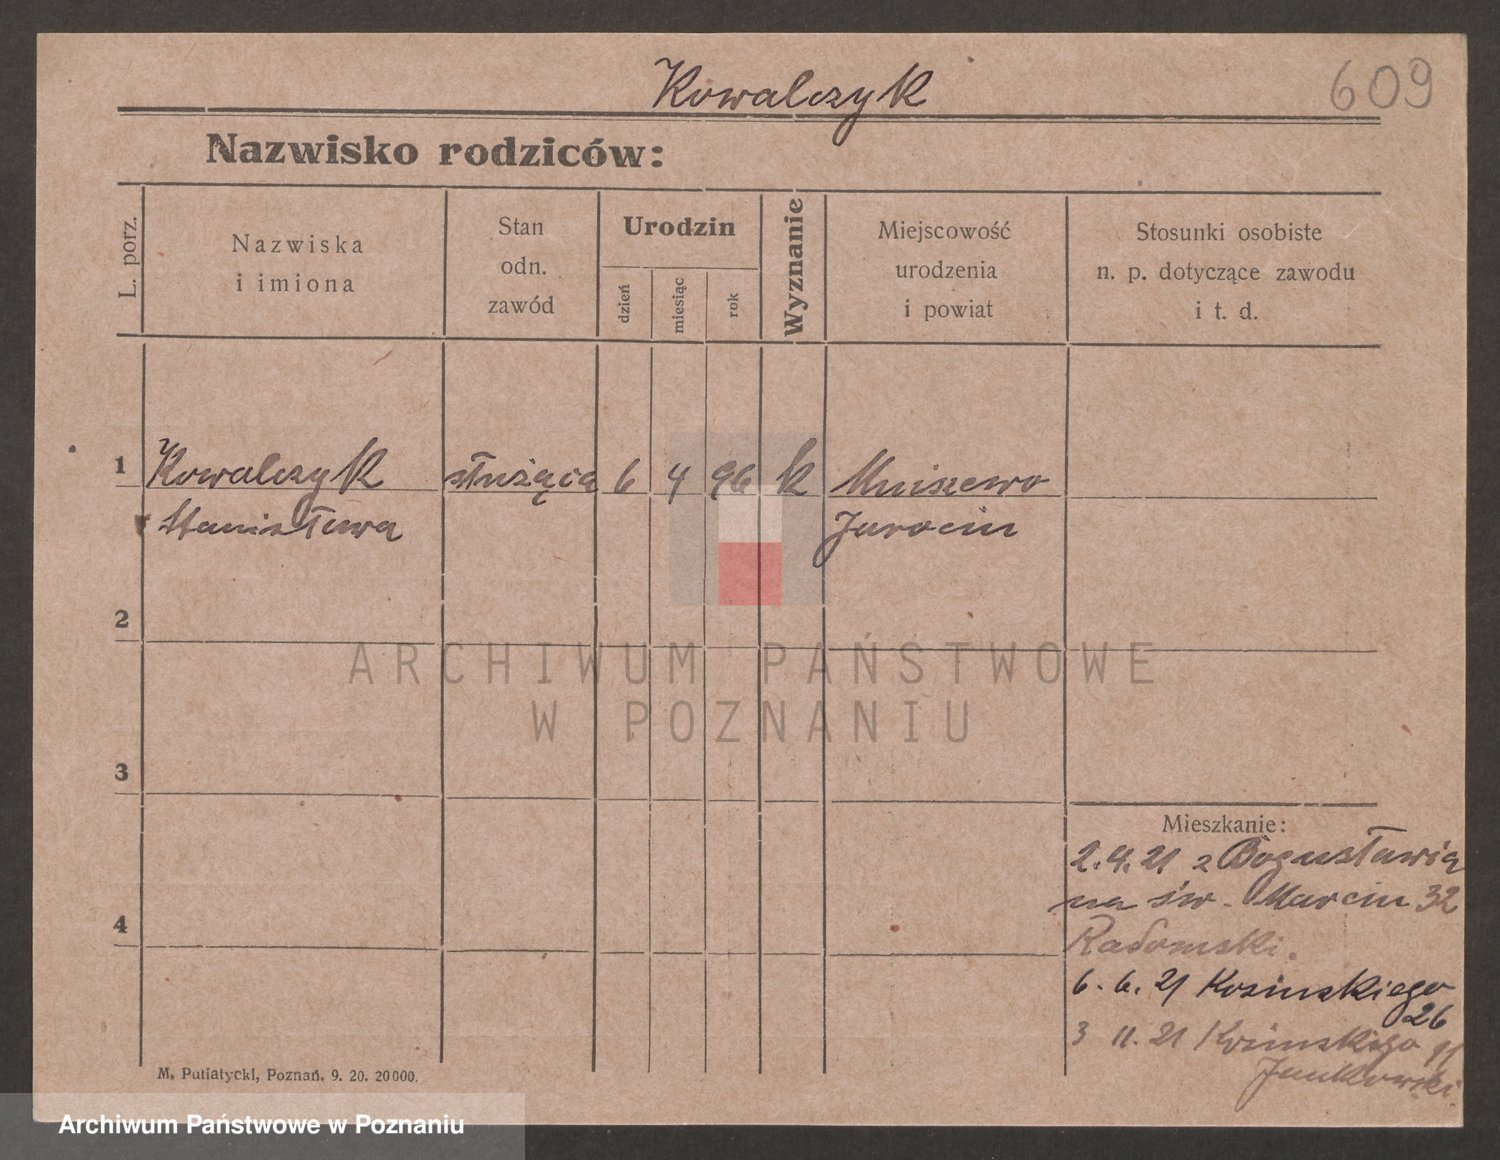 Kowalczyk
609
Nazwisko rodziców:
L. porz.
Nazwiska
i imiona
Stan
odn.
zawód
Urodzin
dzień
miesiąc
rok
Wyznanie
Miejscowość
urodzenia
i powiat
Stosunki osobiste
n. p. dotyczące zawodu
i t. d.
1 Kowalczyk służąca 6 4 96 k Mniszewo
Stanisława Jarocin
2
ARCHIWUM PAŃSTWOWE
W POZNANIU
3
Mieszkanie:
2.4.21 z Bogusławia
na św. Marcin 32
4
Radomski.
6. 6. 21 Kosinskiego
26
3 11. 21
Jankowski.
M. Putiatycki, Poznań. 9. 20. 20000.
Archiwum Państwowe w Poznaniu